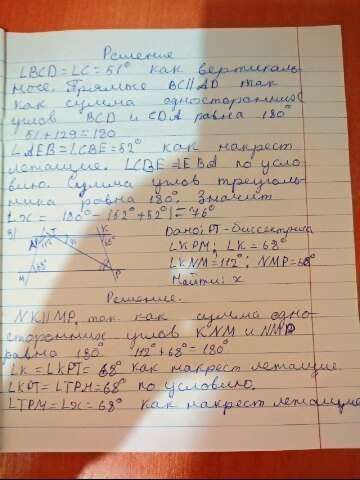 Решение
∠BCD = ∠C = 51° как вертикаль-
ные. Прямые BC||AD так
как сумма односторонних
углов BCD и CDA равна 180°
51+129=180
∠AEB = ∠CBE = 52° как накрест
лежащие. ∠CBE = ∠EBA по усло-
вию. Сумма углов треуголь-
ника равна 180°. Значит
∠x = 180° - (52° + 52°) = 76°
Дано: PT - биссектриса
∠KPM; ∠K = 68°
∠KNM = 112°; NMP = 68°
Найти: x
Решение.
NK||MP, так как сумма одно-
сторонних углов KNM и NMP
равна 180° 112° + 68° = 180°
∠K = ∠KPT = 68° как накрест лежащие.
∠KPT = ∠TPM = 68° по условию.
∠TPM = ∠x = 68° как накрест лежащие